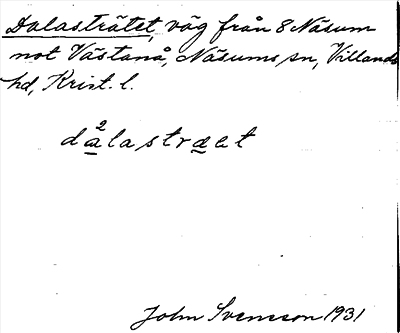 Dalasträtet, väg från 8 Näsum
mot Västanå, Näsums sn, Villands
hd, Krist. l.
da²lastrææt
John Svensson 1931